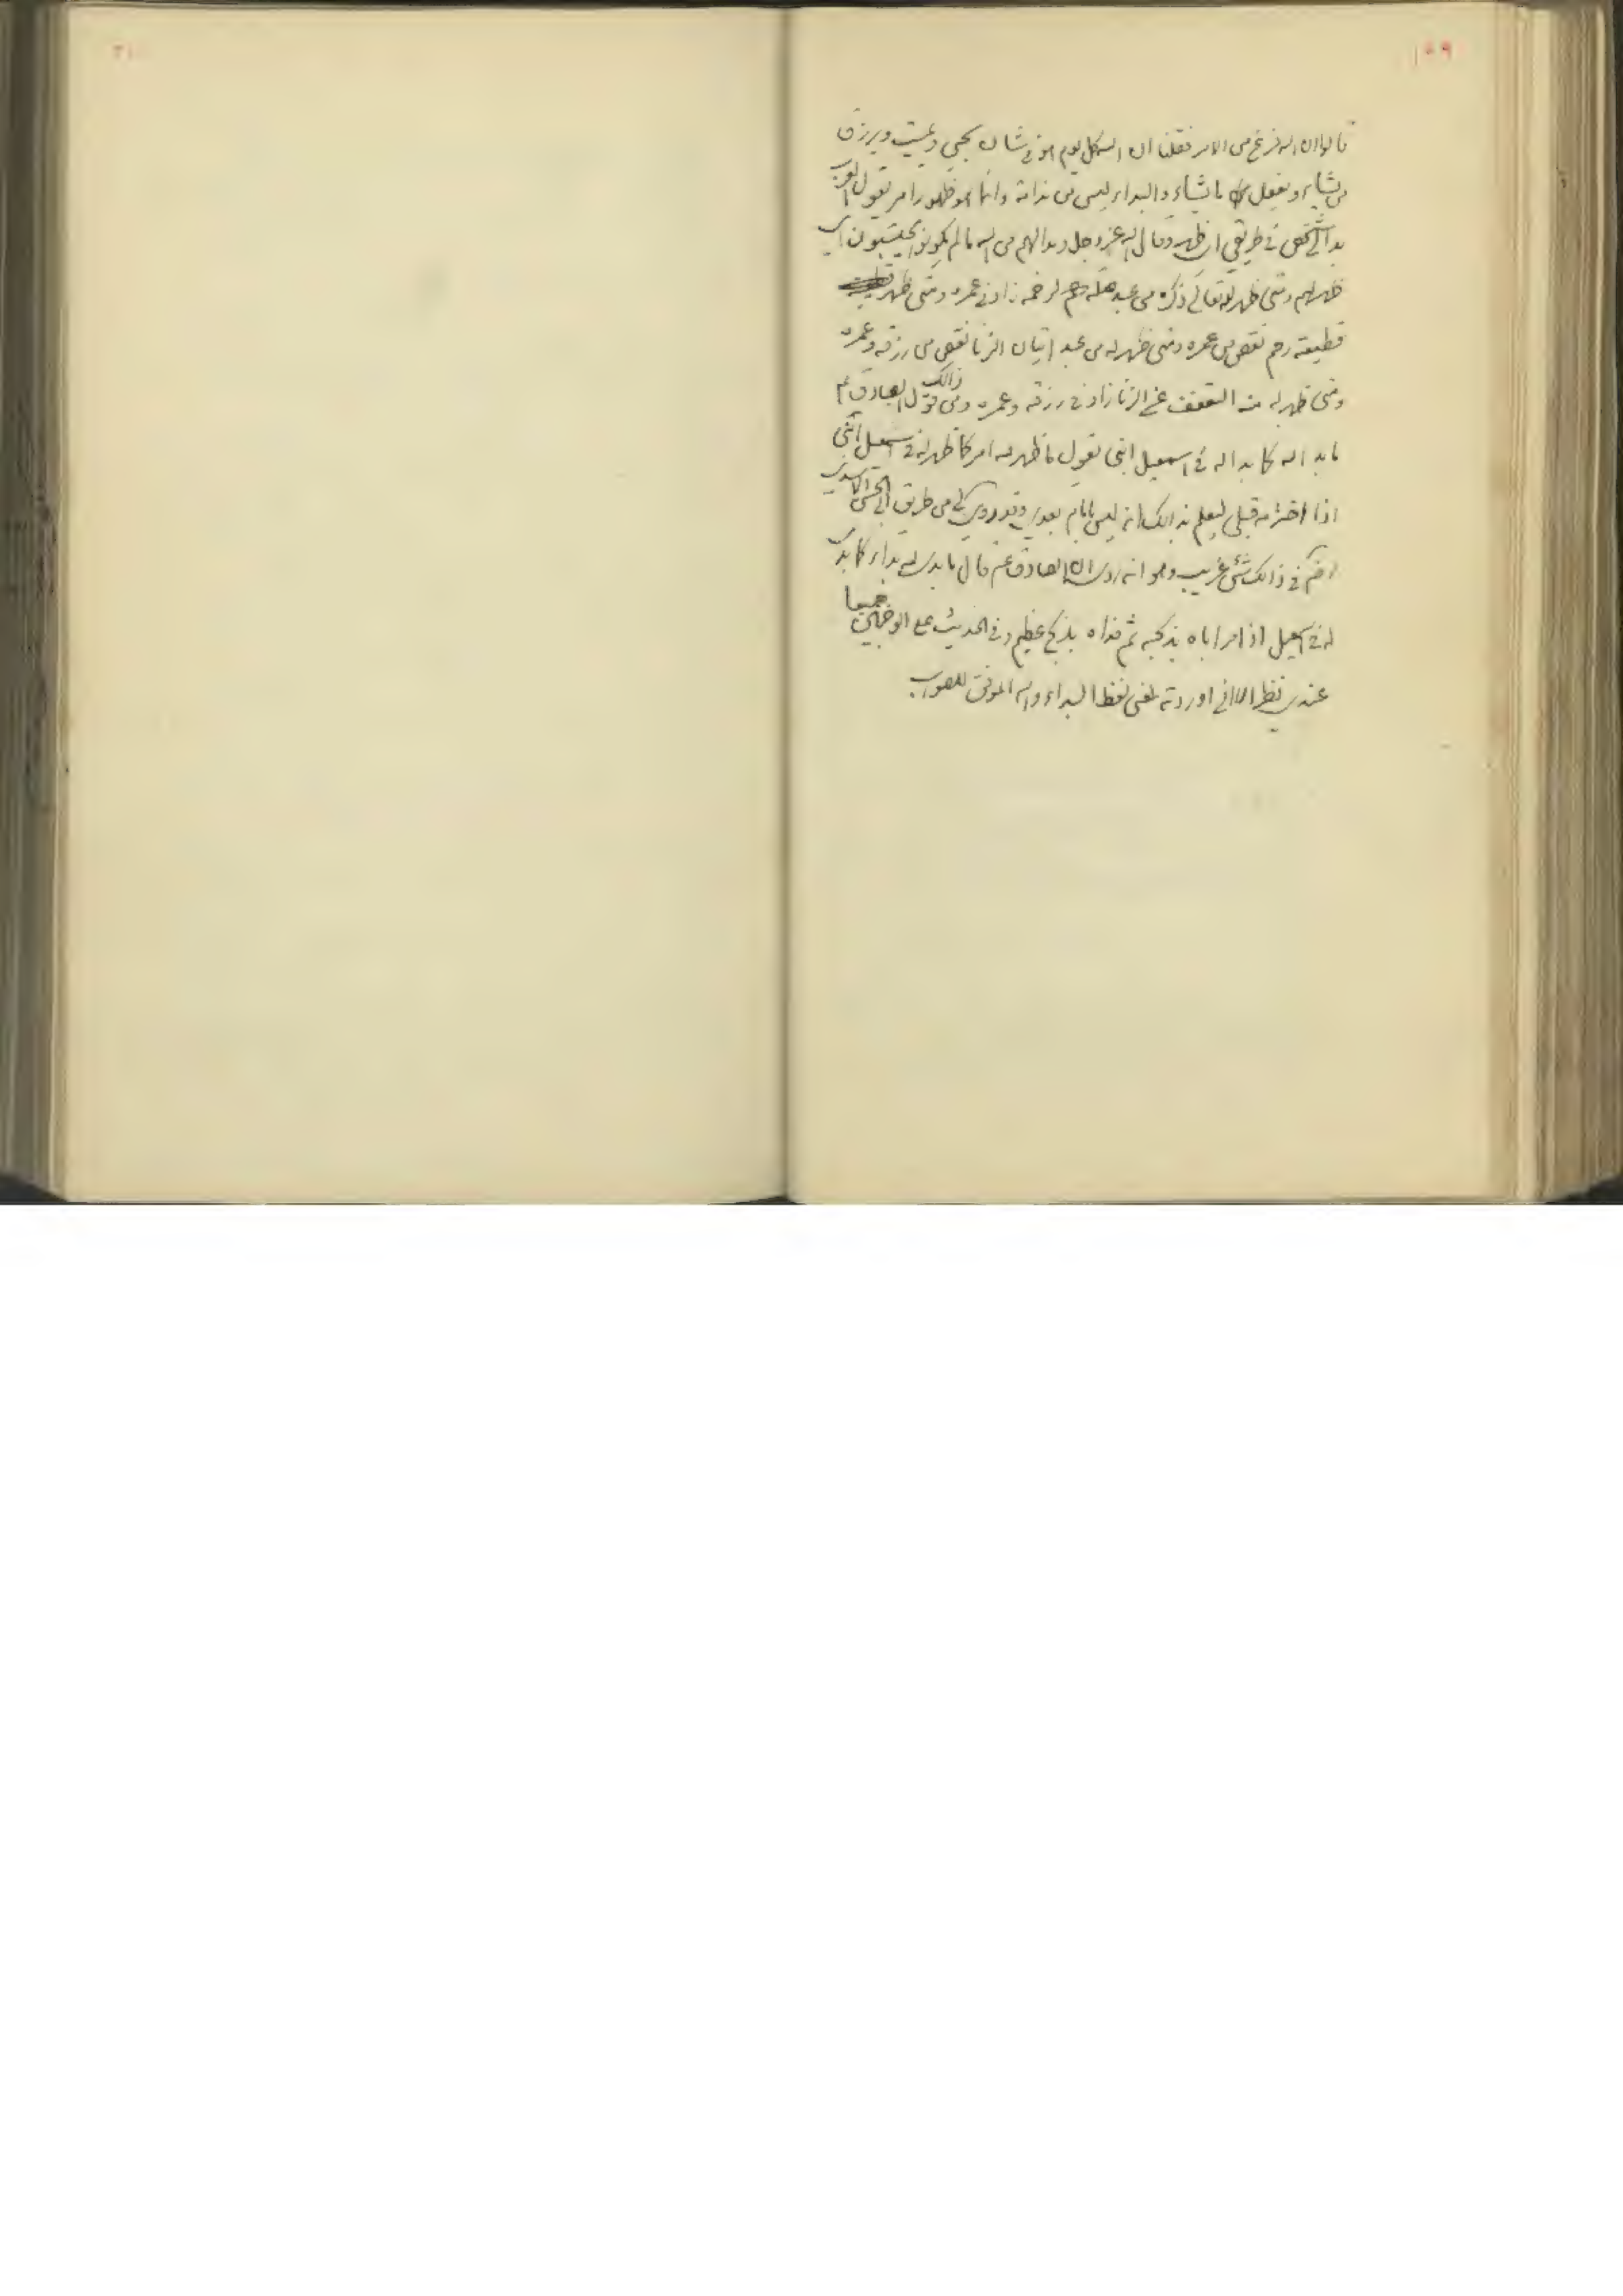 ١٥٩
قالوا ان الله فرغ من الامر فقلنا ان الله كل يوم هو في شان يحيي ويميت ويرزق
من يشاء ويفعل ما يشاء والبداء ليس من ندامة وانما هو ظهور امر يقول العرب
بدا لي شخص في طريقي اي ظهر وقال الله عز وجل وبدا لهم من الله ما لم يكونوا يحتسبون اي
ظهر لهم ومتى ظهر لله تعالى ذكره من عبد صلة لرحمه زاد في عمره ومتى ظهر
قطيعة رحم نقص من عمره ومتى ظهر له من عبد اتيان الزنا نقص من رزقه وعمره
ومتى ظهر له منه التعفف عن الزنا زاد في رزقه وعمره ومن ذالك قول الصادق ع
ما بدا لله كما بدا له في اسمعيل ابني يقول ما ظهر لله امر كما ظهر له في اسمعيل ابني
اذا اخترمه قبلي ليعلم بذالك انه ليس بامام بعدي وقد روي لي من طريق ابي الحسين الاسدي
رضي الله عنه في ذالك شئ غريب وهو انه روى ان الصادق ع قال ما بدا لله بداء كما بدا
له في اسمعيل اذا امر اباه بذبحه ثم فداه بذبح عظيم وفي الحديث على الوجهين جميعا
عندي نظر الا اني اوردته لمعنى لفظ البداء والله الموفق للصواب